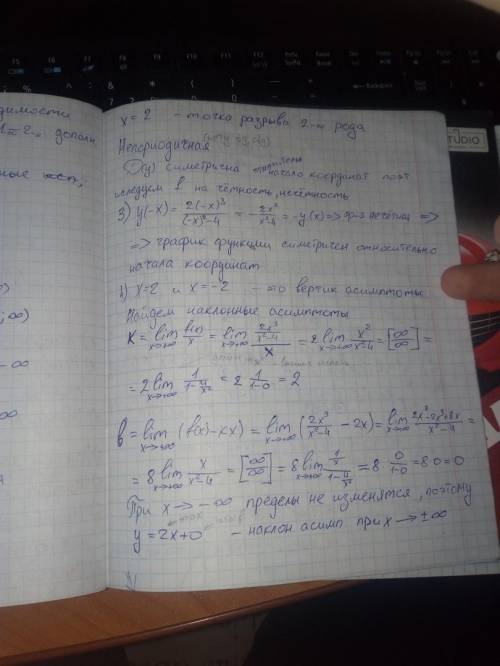 димости
1-2, дополн
x=2 - точка разрыва 2-го рода
Непериодичная
D(y) симетрична начало координат поэт
следуем в на чётность, нечётность
3) y(-x) = 2(-x)³/((-x)²-4) = -2x³/(x²-4) = -y(x) => ф-я нечётная =>
=> график функции симетричен относительно
начала координат
4) x=2 и x=-2 - это вертик асимптоты
Найдем наклонные асимптоты
K = lim x→+∞ f(x)/x = lim x→+∞ (2x³/(x²-4))/x = 2 lim x→+∞ x²/(x²-4) = [∞/∞] =
= 2 lim x→+∞ 1/(1-4/x²) = 2 1/(1-0) = 2
b = lim x→+∞ (f(x)-kx) = lim x→+∞ (2x³/(x²-4) - 2x) = lim x→+∞ (2x³-2x³+8x)/(x²-4) =
= 8 lim x→+∞ x/(x²-4) = [∞/∞] = 8 lim x→+∞ (1/x)/(1-4/x²) = 8 · 0/(1-0) = 8·0 = 0
При x → -∞ пределы не изменятся, поэтому
y = 2x+0 - наклон асимп при x → ±∞